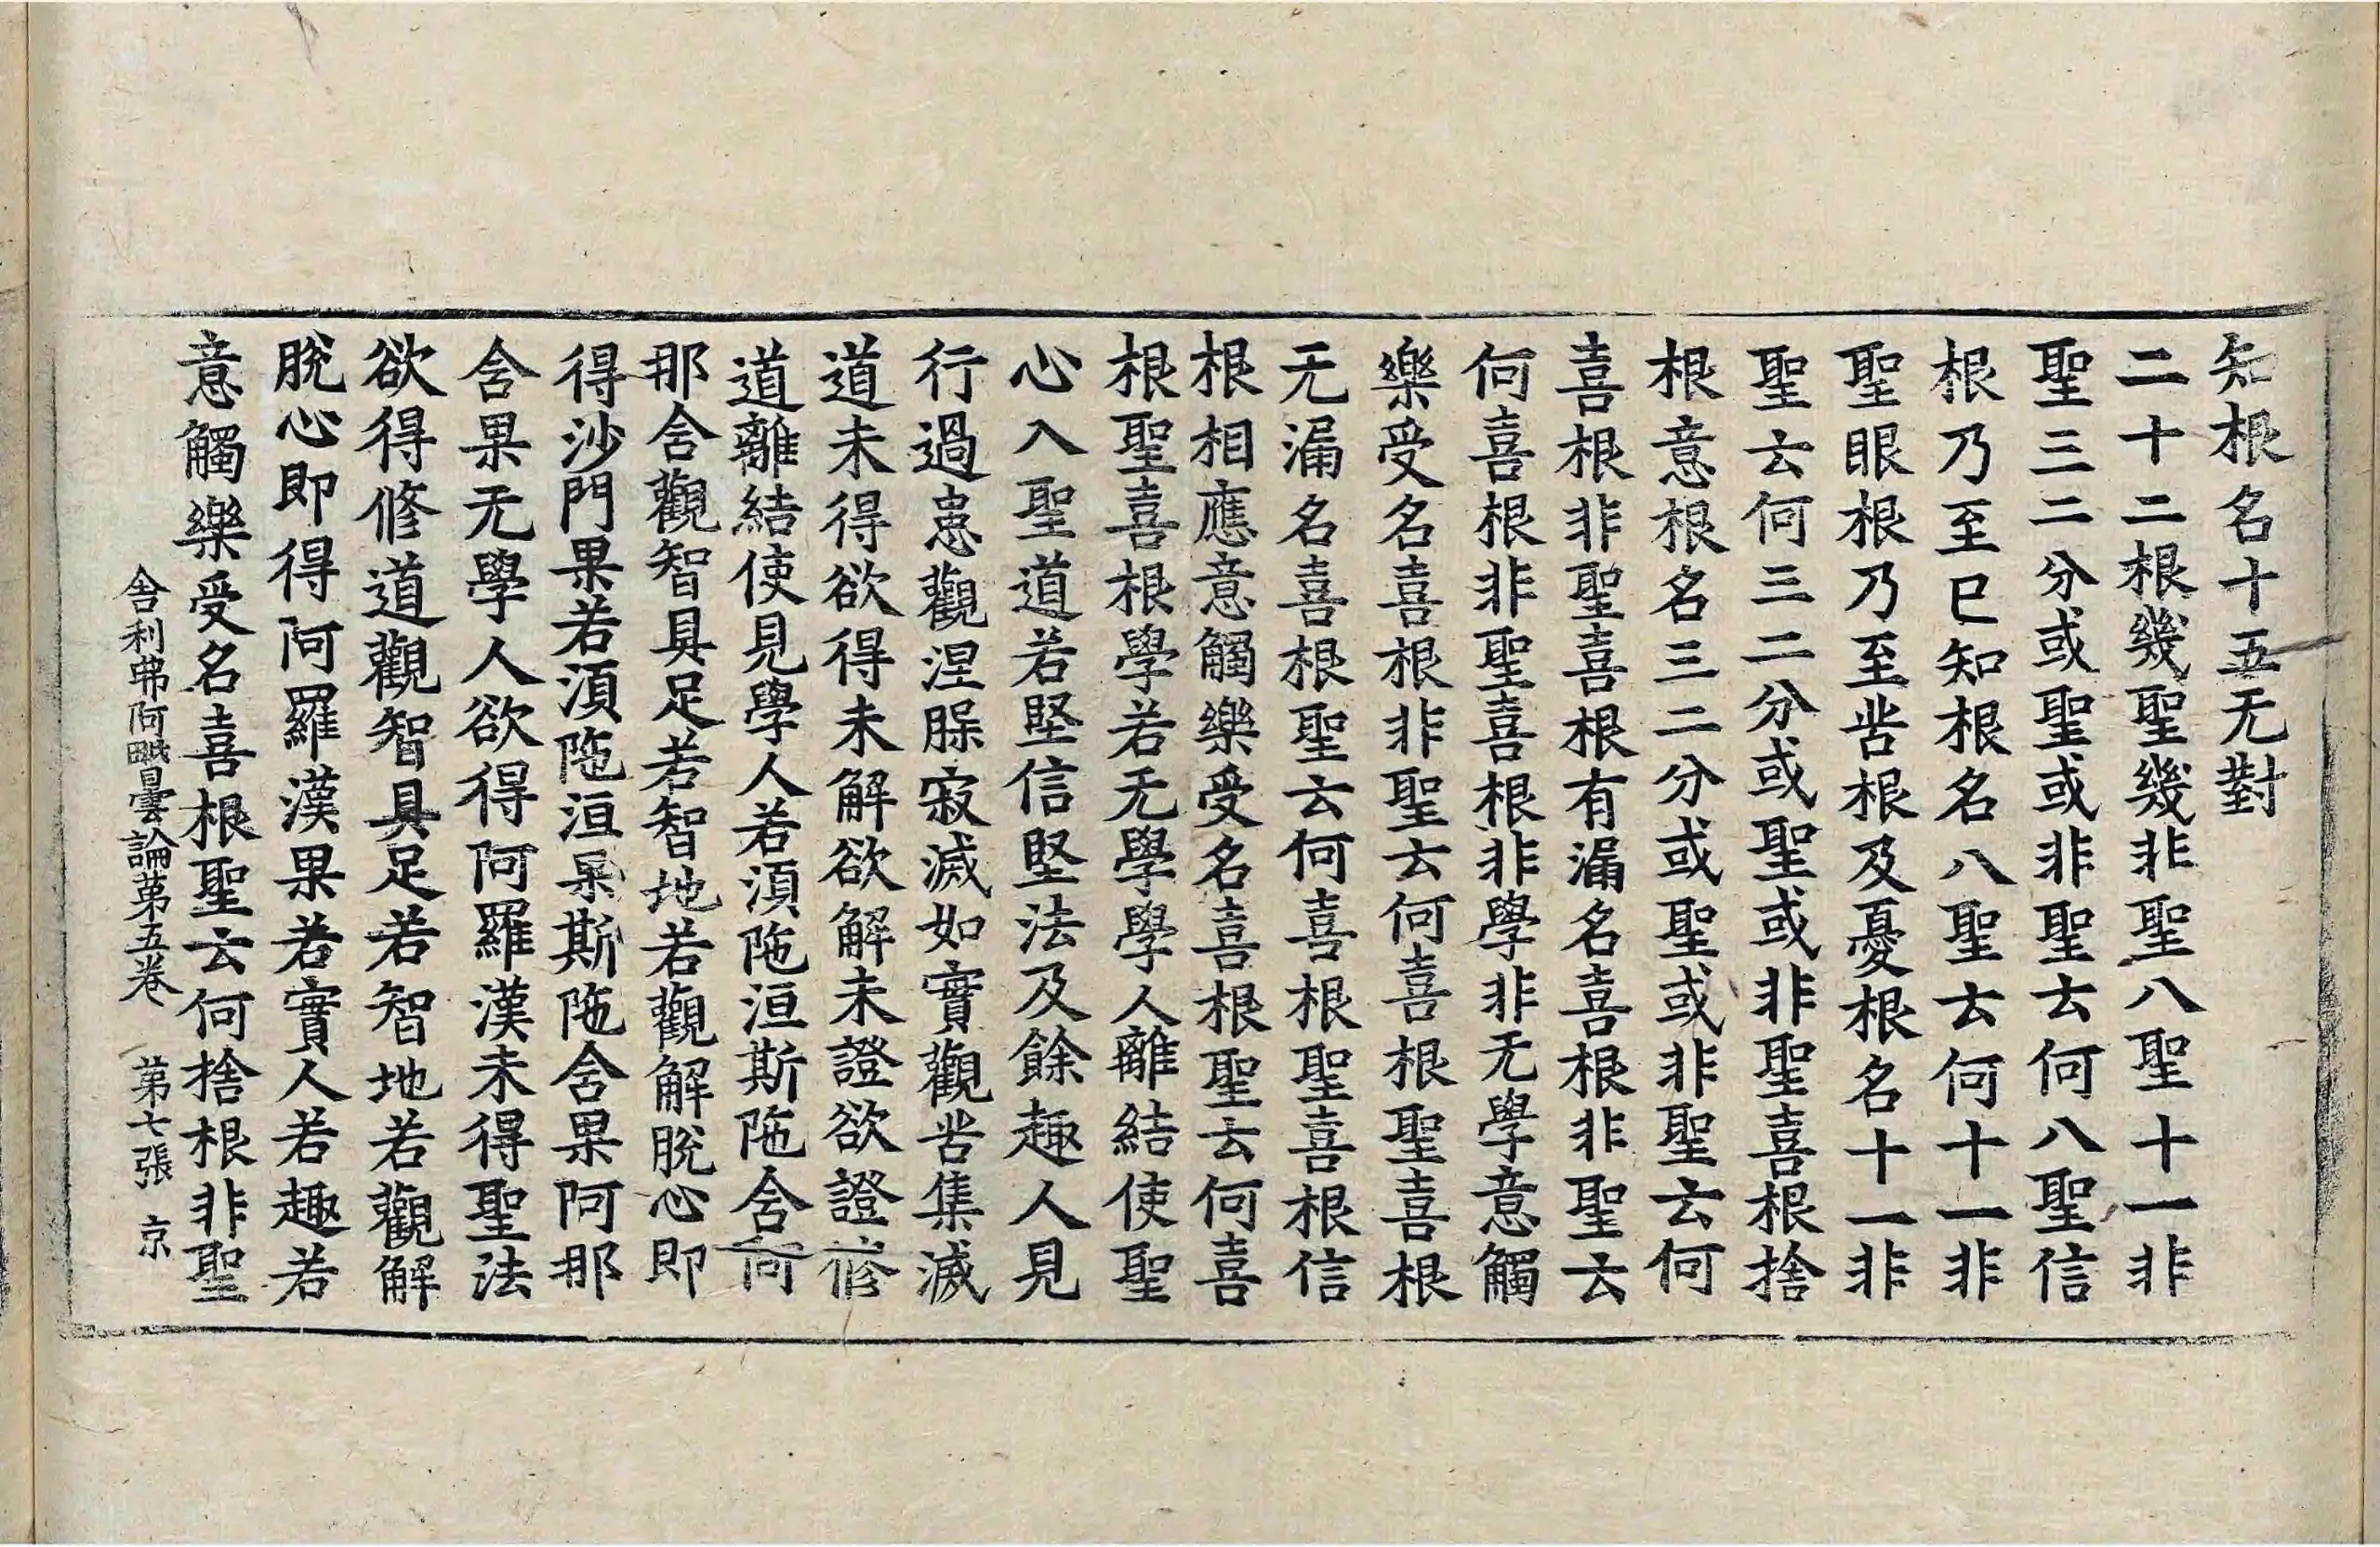 知根名十五无對
二十二根幾聖幾非聖八聖十一非
聖三二分或聖或非聖云何八聖信
根乃至已知根名八聖云何十一非
聖眼根乃至苦根及憂根名十一非
聖云何三二分或聖或非聖喜根捨
根意根名三二分或聖或非聖云何
喜根非聖喜根有漏名喜根非聖云
何喜根非聖喜根非學非无學意觸
樂受名喜根非聖云何喜根聖喜根
无漏名喜根聖云何喜根聖喜根信
根相應意觸樂受名喜根聖云何喜
根聖喜根學若无學學人離結使聖
心入聖道若堅信堅法及餘趣人見
行過患觀涅槃寂滅如實觀苦集滅
道未得欲得未解欲解未證欲證修
道離結使見學人若湏陁洹斯陁舍阿
那舍觀智具足若智地若觀解脫心即
得沙門果若湏陁洹果斯陁舍果阿那
舍果无學人欲得阿羅漢未得聖法
欲得修道觀智具足若智地若觀解
脫心即得阿羅漢果若實人若趣若
意觸樂受名喜根聖云何捨根非聖
舍利弗阿毗曇論第五卷 第七張 京